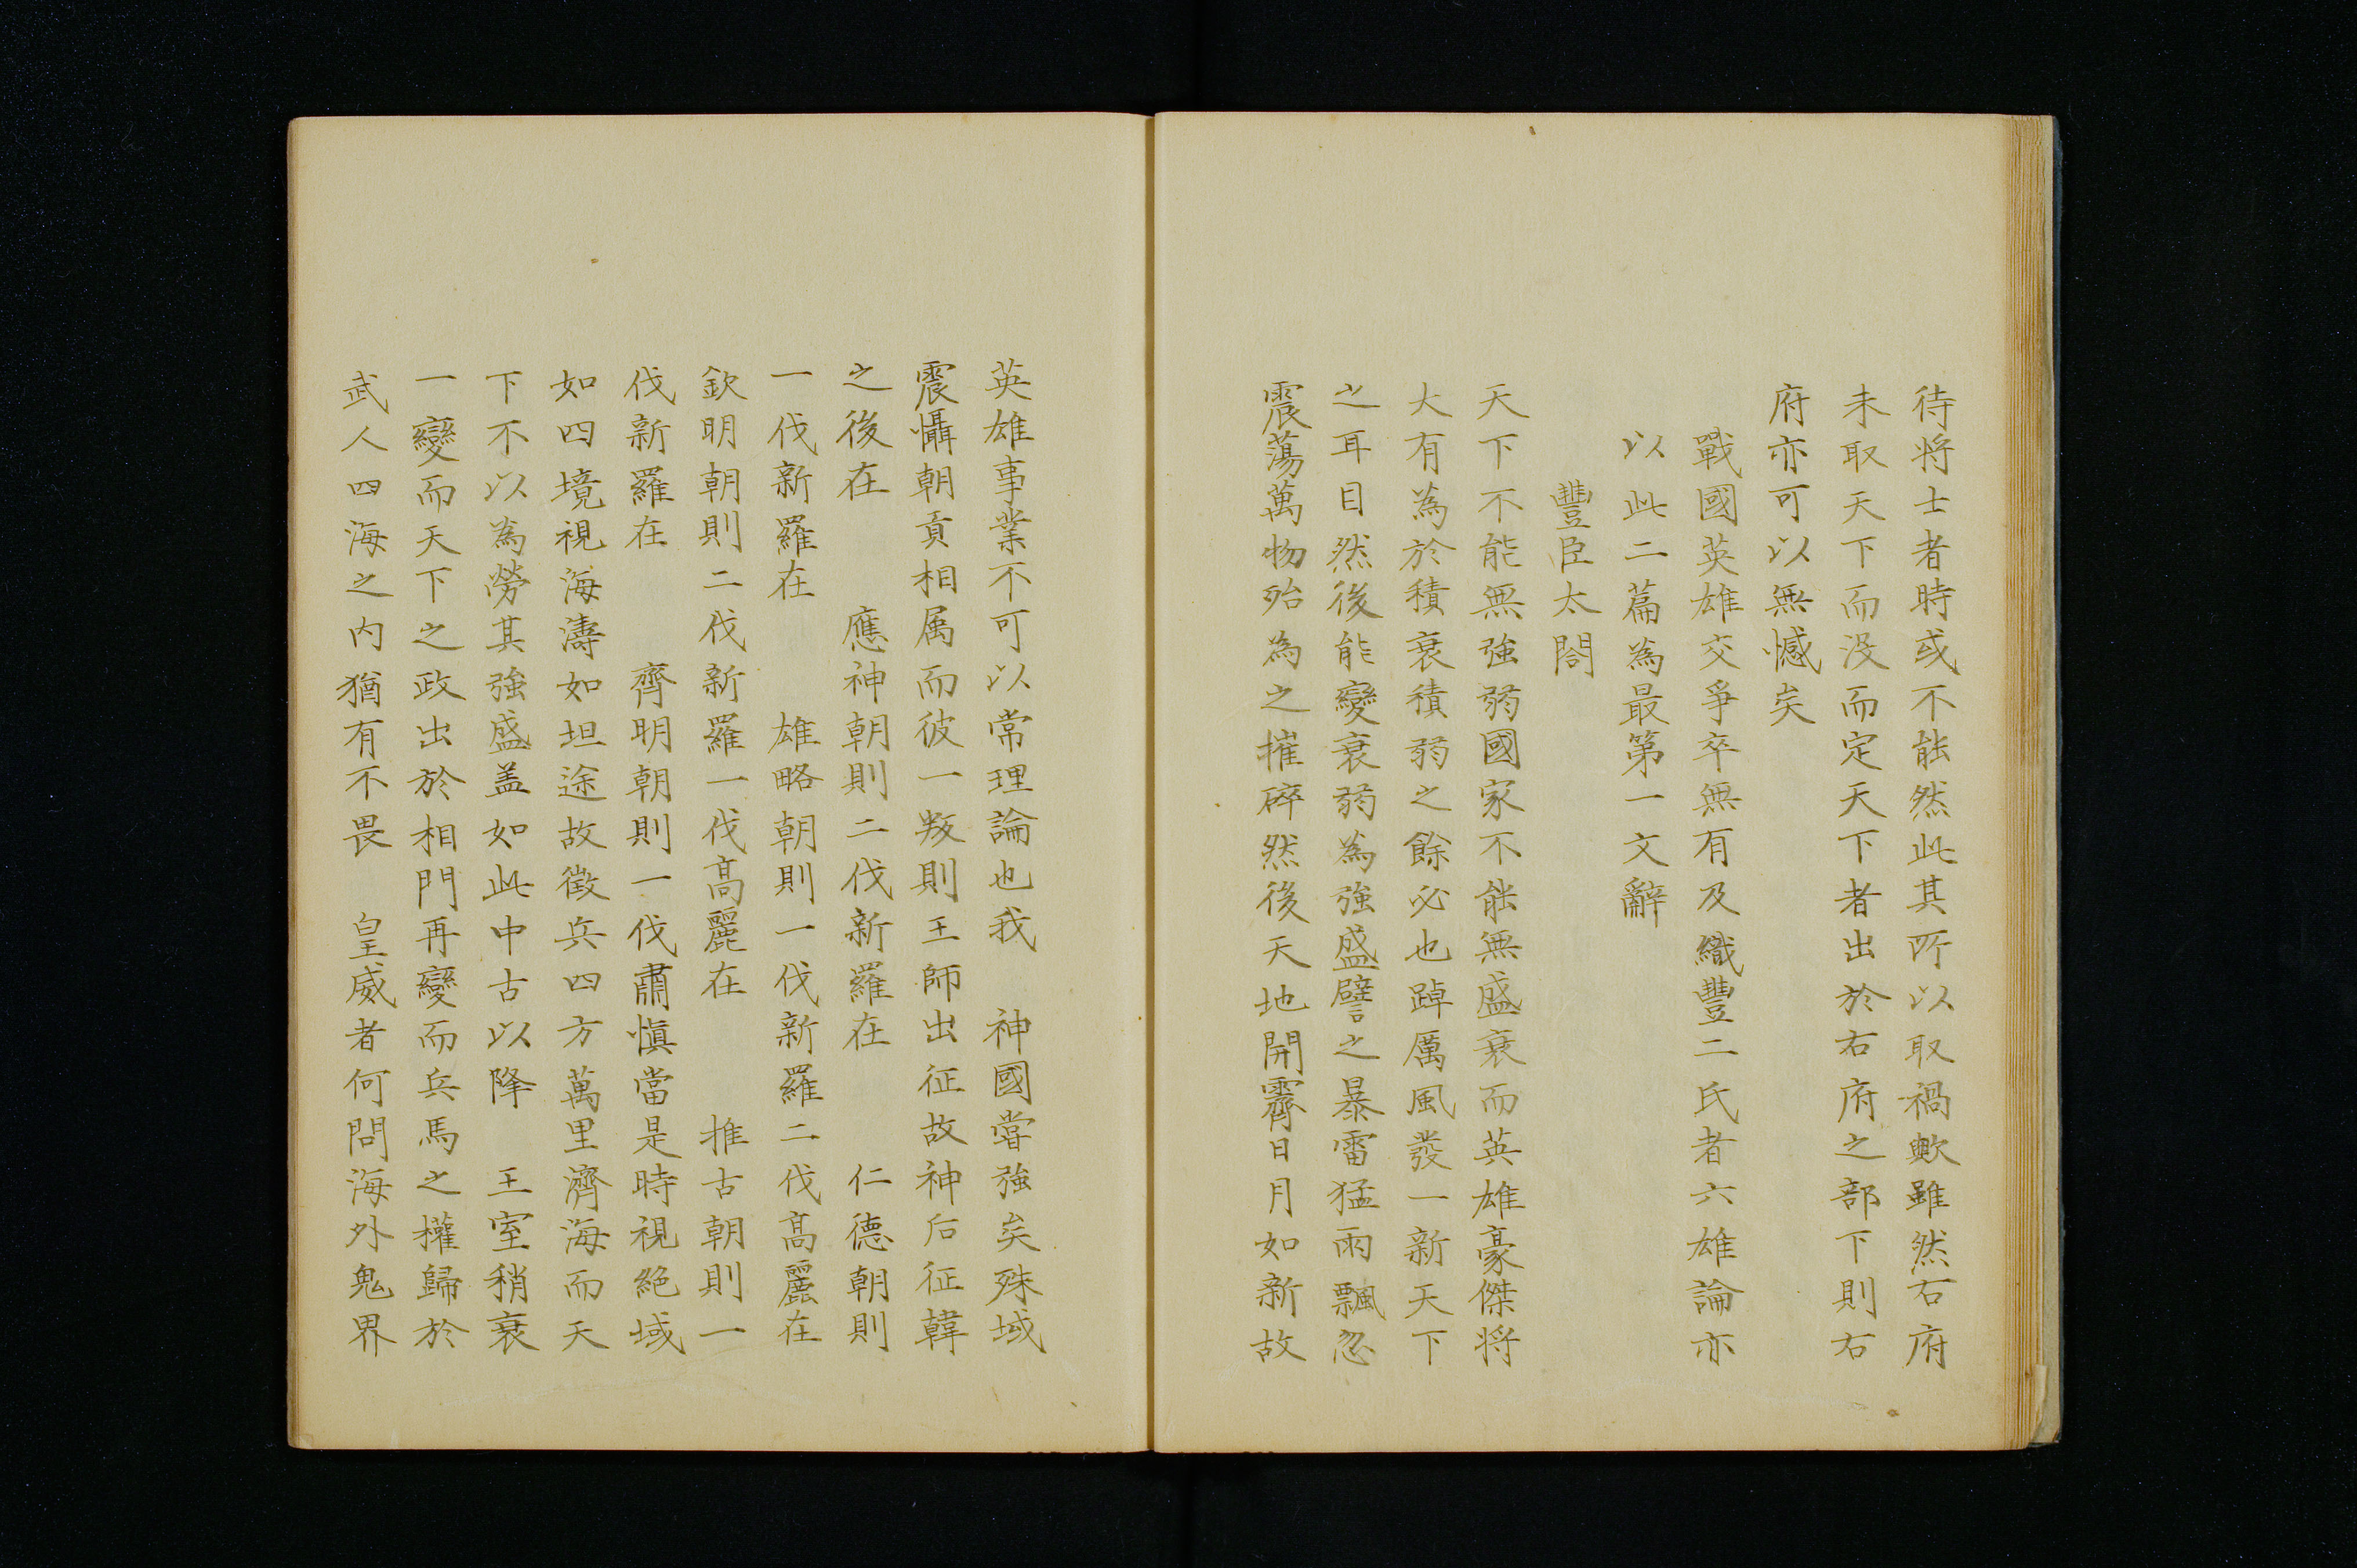 待将士者時或不能然此其所以取禍歟雖然右府
未取天下而没而定天下者出於右府之部下則右
府亦可以無憾矣
戰國英雄交爭卒無有及織豐二氏者六雄論亦
以此二篇為最第一文辭
豐臣太閤
天下不能無強弱國家不能無盛衰而英雄豪傑将
大有為於積衰積弱之餘必也踔厲風發一新天下
之耳目然後能變衰弱為強盛譬之暴雷猛雨飄忽
震蕩萬物殆為之摧碎然後天地開霽日月如新故
英雄事業不可以常理論也我　神國嘗強矣殊域
震懾朝貢相属而彼一叛則王師出征故神后征韓
之後在　應神朝則二伐新羅在　仁德朝則
一伐新羅在　雄略朝則一伐新羅二伐髙麗在
欽明朝則二伐新羅一伐髙麗在　推古朝則一
伐新羅在　齊明朝則一伐肅愼當是時視絶域
如四境視海濤如坦途故徴兵四方萬里濟海而天
下不以為勞其強盛盖如此中古以降　王室稍衰
一變而天下之政出於相門再變而兵馬之權歸於
武人四海之内猶有不畏　皇威者何問海外鬼界